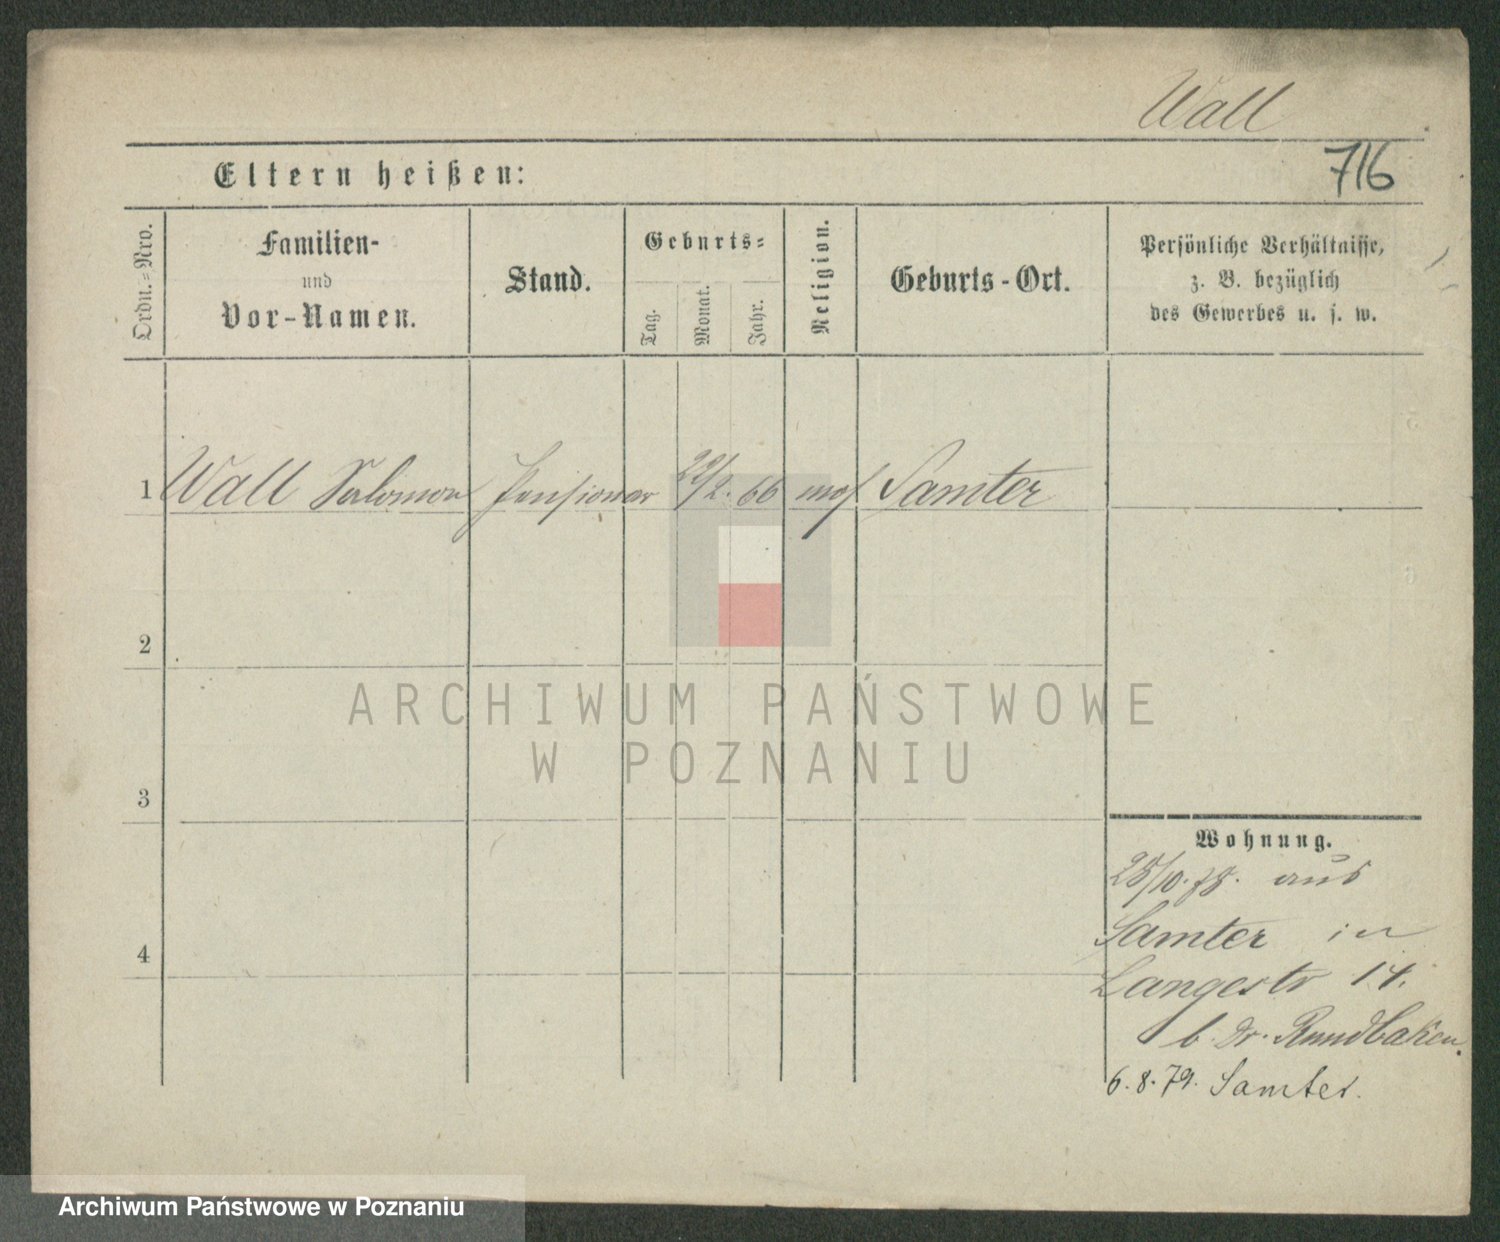 Wall
716
Eltern heißen:
Ordn.-Nro.
Familien-
und
Vor-Namen.
Stand.
Geburts-
Tag.
Monat.
Jahr.
Religion.
Geburts-Ort.
Persönliche Verhältnisse,
z. B. bezüglich
des Gewerbes u. s. w.
1 Wall Salomon Pensionär 22/2. 66 mos Samter
2
3
4
Wohnung.
28/10. 78. aus
Samter in
Langestr 14.
b. Dr. Rundbaken.
6.8.79. Samter.
ARCHIWUM PAŃSTWOWE
W POZNANIU
Archiwum Państwowe w Poznaniu